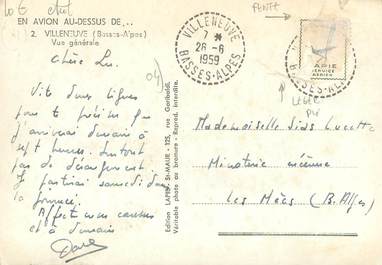 Lot
EN AVION AU-DESSUS DE...
2. VILLENEUVE (Basses-Alpes)
Vue générale
04
Chère Lu.
Vite deux lignes
pour te préciser que
j'arriverai demain à
sept heures. Surtout
pas de dérangement
Je partirai samedi dans
la journée.
Affectueuses caresses
et à demain
Edition LAPIE, St-MAUR - 125, rue Garibaldi.
Véritable photo au bromure - Reprod. interdite.
VILLENEUVE
7 *
26-6
1959
BASSES-ALPES
FENTE
LAPIE
SERVICE
AERIEN
BASSES-AL
LEGER
PLI
Mademoiselle
Minoterie
Les Mées (B. Alpes)